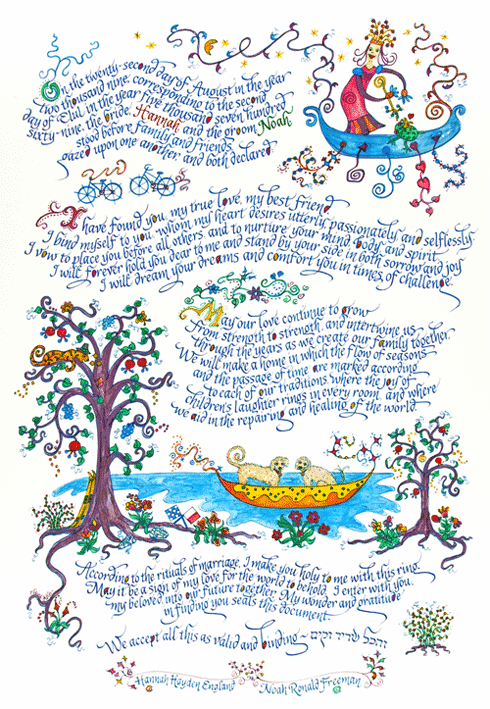 On the twenty-second day of August in the year
two thousand nine, corresponding to the second
day of Elul in the year five thousand seven hundred
sixty-nine, the bride, Hannah, and the groom, Noah
stood before family and friends
gazed upon one another and both declared
I have found you, my true love, my best friend
I bind myself to you whom my heart desires utterly, passionately and selflessly
I vow to place you before all others, and to nurture your mind, body and spirit
I will forever hold you dear to me and stand by your side in both sorrow and joy
I will dream your dreams and comfort you in times of challenge.
May our love continue to grow
from strength to strength, and intertwine us
through the years as we create our family together
We will make a home in which the flow of seasons
and the passage of time are marked according
to each of our traditions, where the joy of
children's laughter rings in every room, and where
we aid in the repairing and healing of the world
According to the rituals of marriage, I make you holy to me with this ring
May it be a sign of my love for the world to behold. I enter with you,
my beloved, into our future together. My wonder and gratitude
in finding you seals this document.
We accept all this as valid and binding ~ והכל שריר וקים
Hannah Hayden England Noah Ronald Freeman